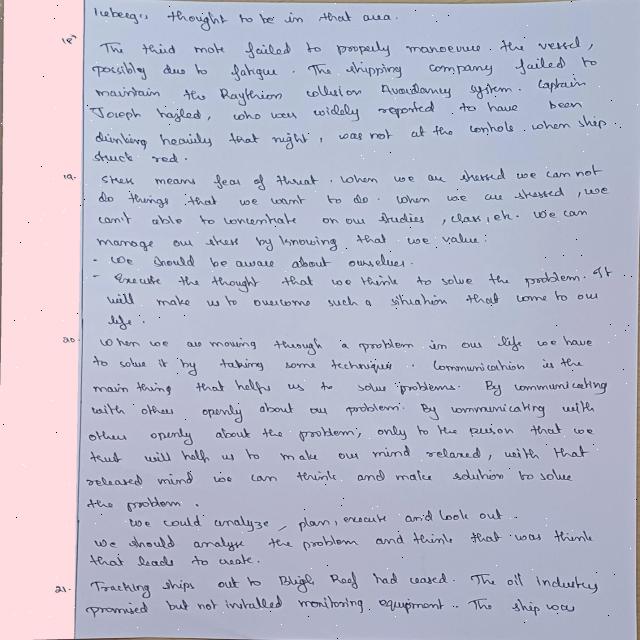 Icebergs thought to be in that area.
18. The third mate failed to properly manoeuvre the vessel,
possibly due to fatigue. The shipping company failed to
maintain the Raytheion collision Avoidancy system. Captain
Joseph hazled, who was widely reported to have been
drinking heavily that night, was not at the conhole when ship
struck red.
19. Stress means fear of threat. When we are stressed we can not
do things that we want to do. When we are stressed, we
can't able to concentrate on our studies, class, etc. We can
manage our stress by knowing that we value:
- We should be aware about ourselves.
- Execute the thought that we think to solve the problem. It
will make us to overcome such a situation that come to our
life.
20. When we are moving through a problem in our life we have
to solve it by taking some techniques. Communication is the
main thing that helps us to solve problems. By communicating
with others openly about our problem. By communicating with
others openly about the problem, only to the person that we
trust will help us to make our mind relaxed, with that
released mind we can think and make solution to solve
the problem.
We could analyze, plan, execute and look out.
We should analyse the problem and think that was think
that leads to create.
21. Tracking ships out to Bligh Reef had ceased. The oil industry
promised but not installed monitoring equipment. The ship was